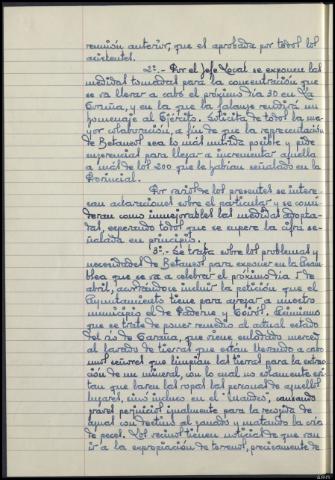 reunión anterior, que es aprobada por todos los
asistentes.
2º.- Por el Jefe Local se exponen las
medidas tomadas para la concentración que
se va llevar a cabo el próximo día 30 en La
Coruña, y en la que la falange rendirá un
homenaje al Ejército. Solicita de todos la ma-
yor colaboración, a fin de que la representación
de Betanzos sea lo más nutrida posible y pide
sugerencias para llegar a incrementar aquella
a más de los 200 que le habían señalado en la
Provincial.
Por varios de los presentes se intere-
san aclaraciones sobre el particular y se consi-
deran como inmejorables las medidas adopta-
das, esperando todos que se supere la cifra se-
ñalada en principio.
3º.- Se trata sobre los problemas y
necesidades de Betanzos para exponer en la Asam-
blea que se va a celebrar el próximo día 1 de
abril, acordándose incluir la petición que el
Ayuntamiento tiene para agregar a nuestro
municipio el de Paderne y Coirós. Asimismo
que se trate de poner remedio al actual estado
del río de Caraña, que viene enlodado merced
al lavado de tierras que están llevando a cabo
unos señores que limpian las tierras para la extrac-
ción de un mineral, con lo cual no solamente evi-
tan que laven las ropas las personas de aquellos
lugares, sino incluso en el Mandeo, causando
graves perjuicios igualmente para la recogida de
agua con destino al ganado y matando la cría
de peces. Los vecinos tienen noticias de que van
ir a la expropiación de terrenos, precisamente de